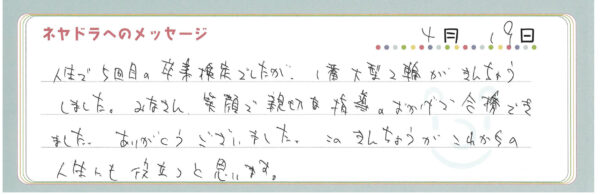 ネヤドラへのメッセージ
4月 19日
人生で5回目の卒業検定でしたが、1番大型2輪がきんちょう
しました。みなさん、笑顔で親切な指導のおかげで合格でき
ました。ありがとうございました。このきんちょうがこれからの
人生にも役立つと思います。